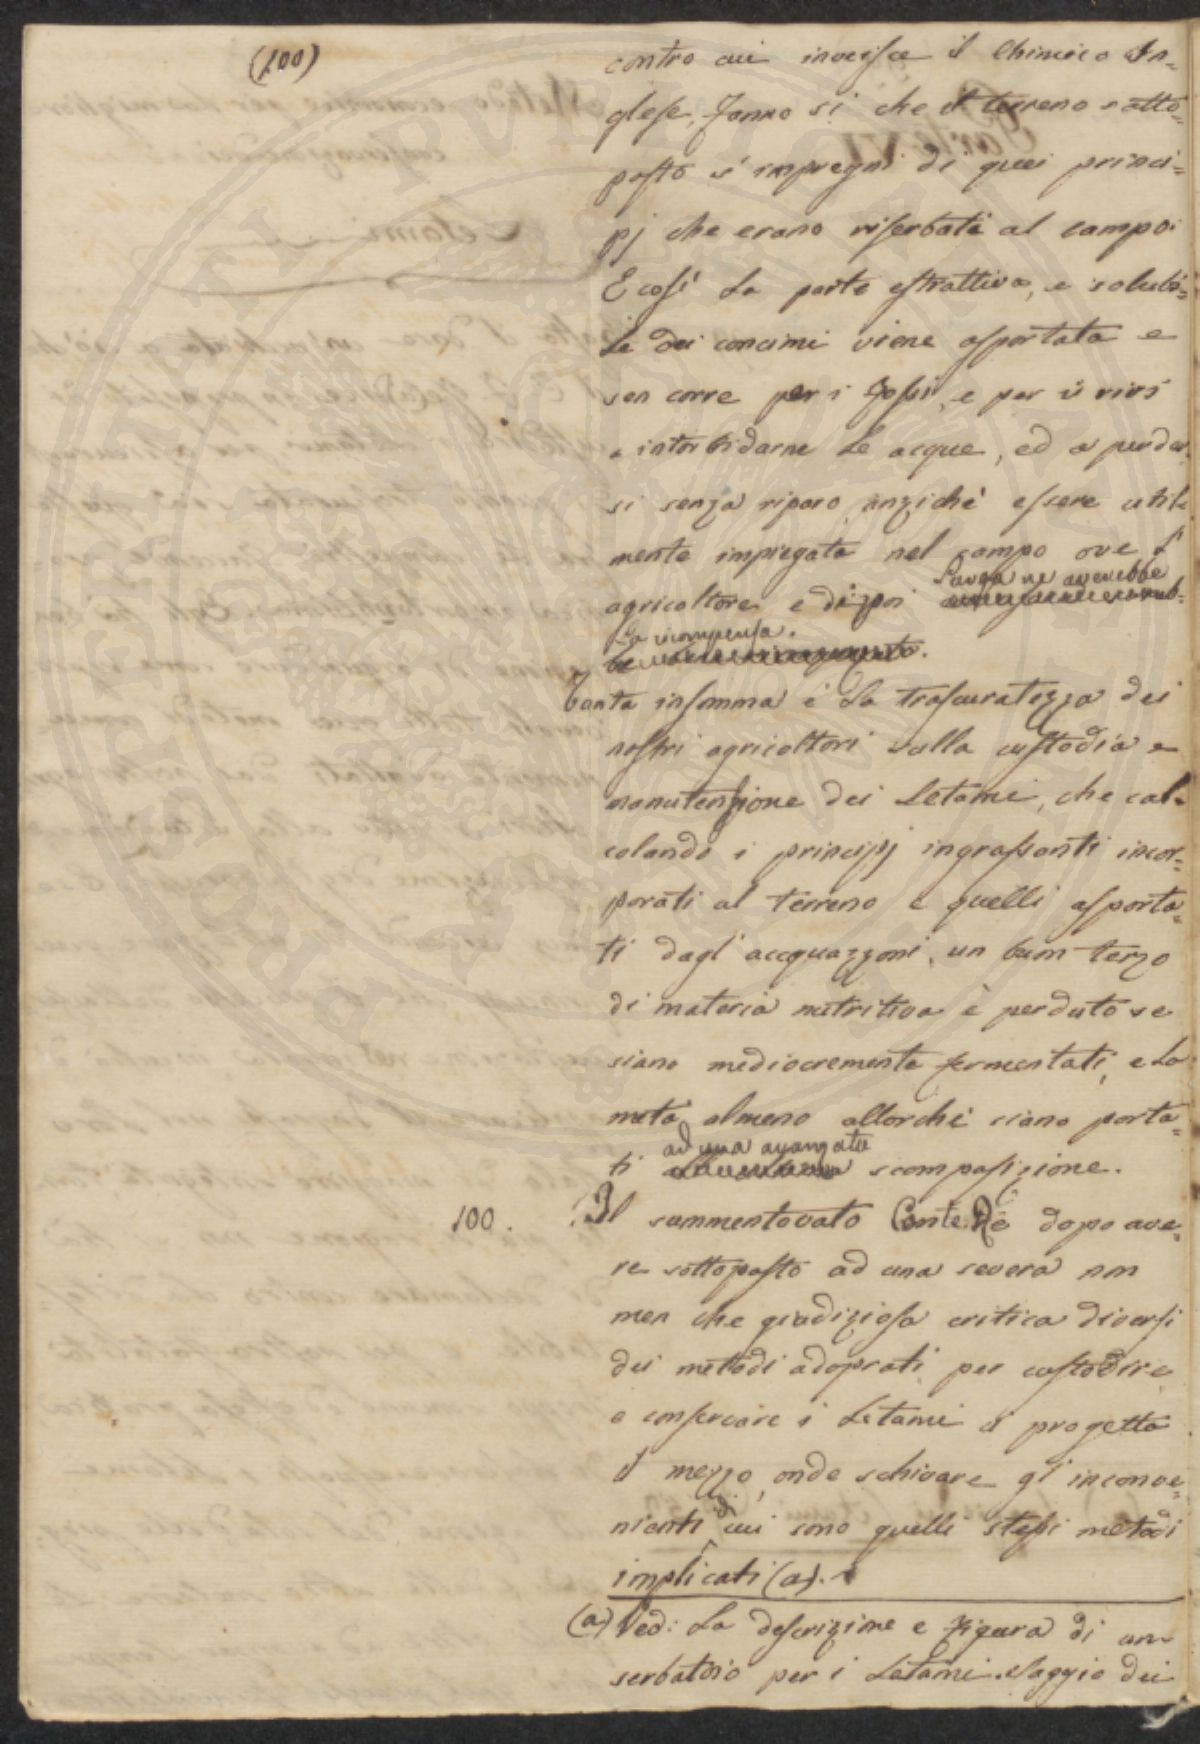 (100)
contro cui inveisce il Chimico In-
glese, fanno sì che il terreno sotto-
posto s'impregni di quei princi-
pj che erano riserbati al campo:
E così la parte estrattiva, e solubi-
le dei concimi viene asportata e
sen corre per i fossi, e per i rivi
a intorbidarne le acque, ed a perder-
si senza riparo anzichè essere util-
mente impiegata nel campo ove l'
agricoltore e dippoi larga ne averebbe
la ricompensa.
Tanta insomma è la trascuratezza dei
nostri agricoltori sulla custodia e
manutenzione dei Letami, che cal-
colando i principj ingrassanti incor-
porati al terreno e quelli asporta-
ti dagl'accquazzoni, un buon terzo
di materia nutritiva è perduto se
siano mediocremente fermentati, e la
metà almeno allorchè siano porta-
ti ad una avanzata scomposizione.
100. Il summentovato Conte Re dopo ave-
re sottoposto ad una severa non
men che giudiziosa critica diversi
dei metodi adoprati per custodire
e conservare i Letami ci progetta
il mezzo, onde schivare gl'inconve-
nienti di cui sono quelli stessi metodi
implicati (a).
(a) Ved: la descrizione e figura di un
serbatoio per i Letami. Saggio dei